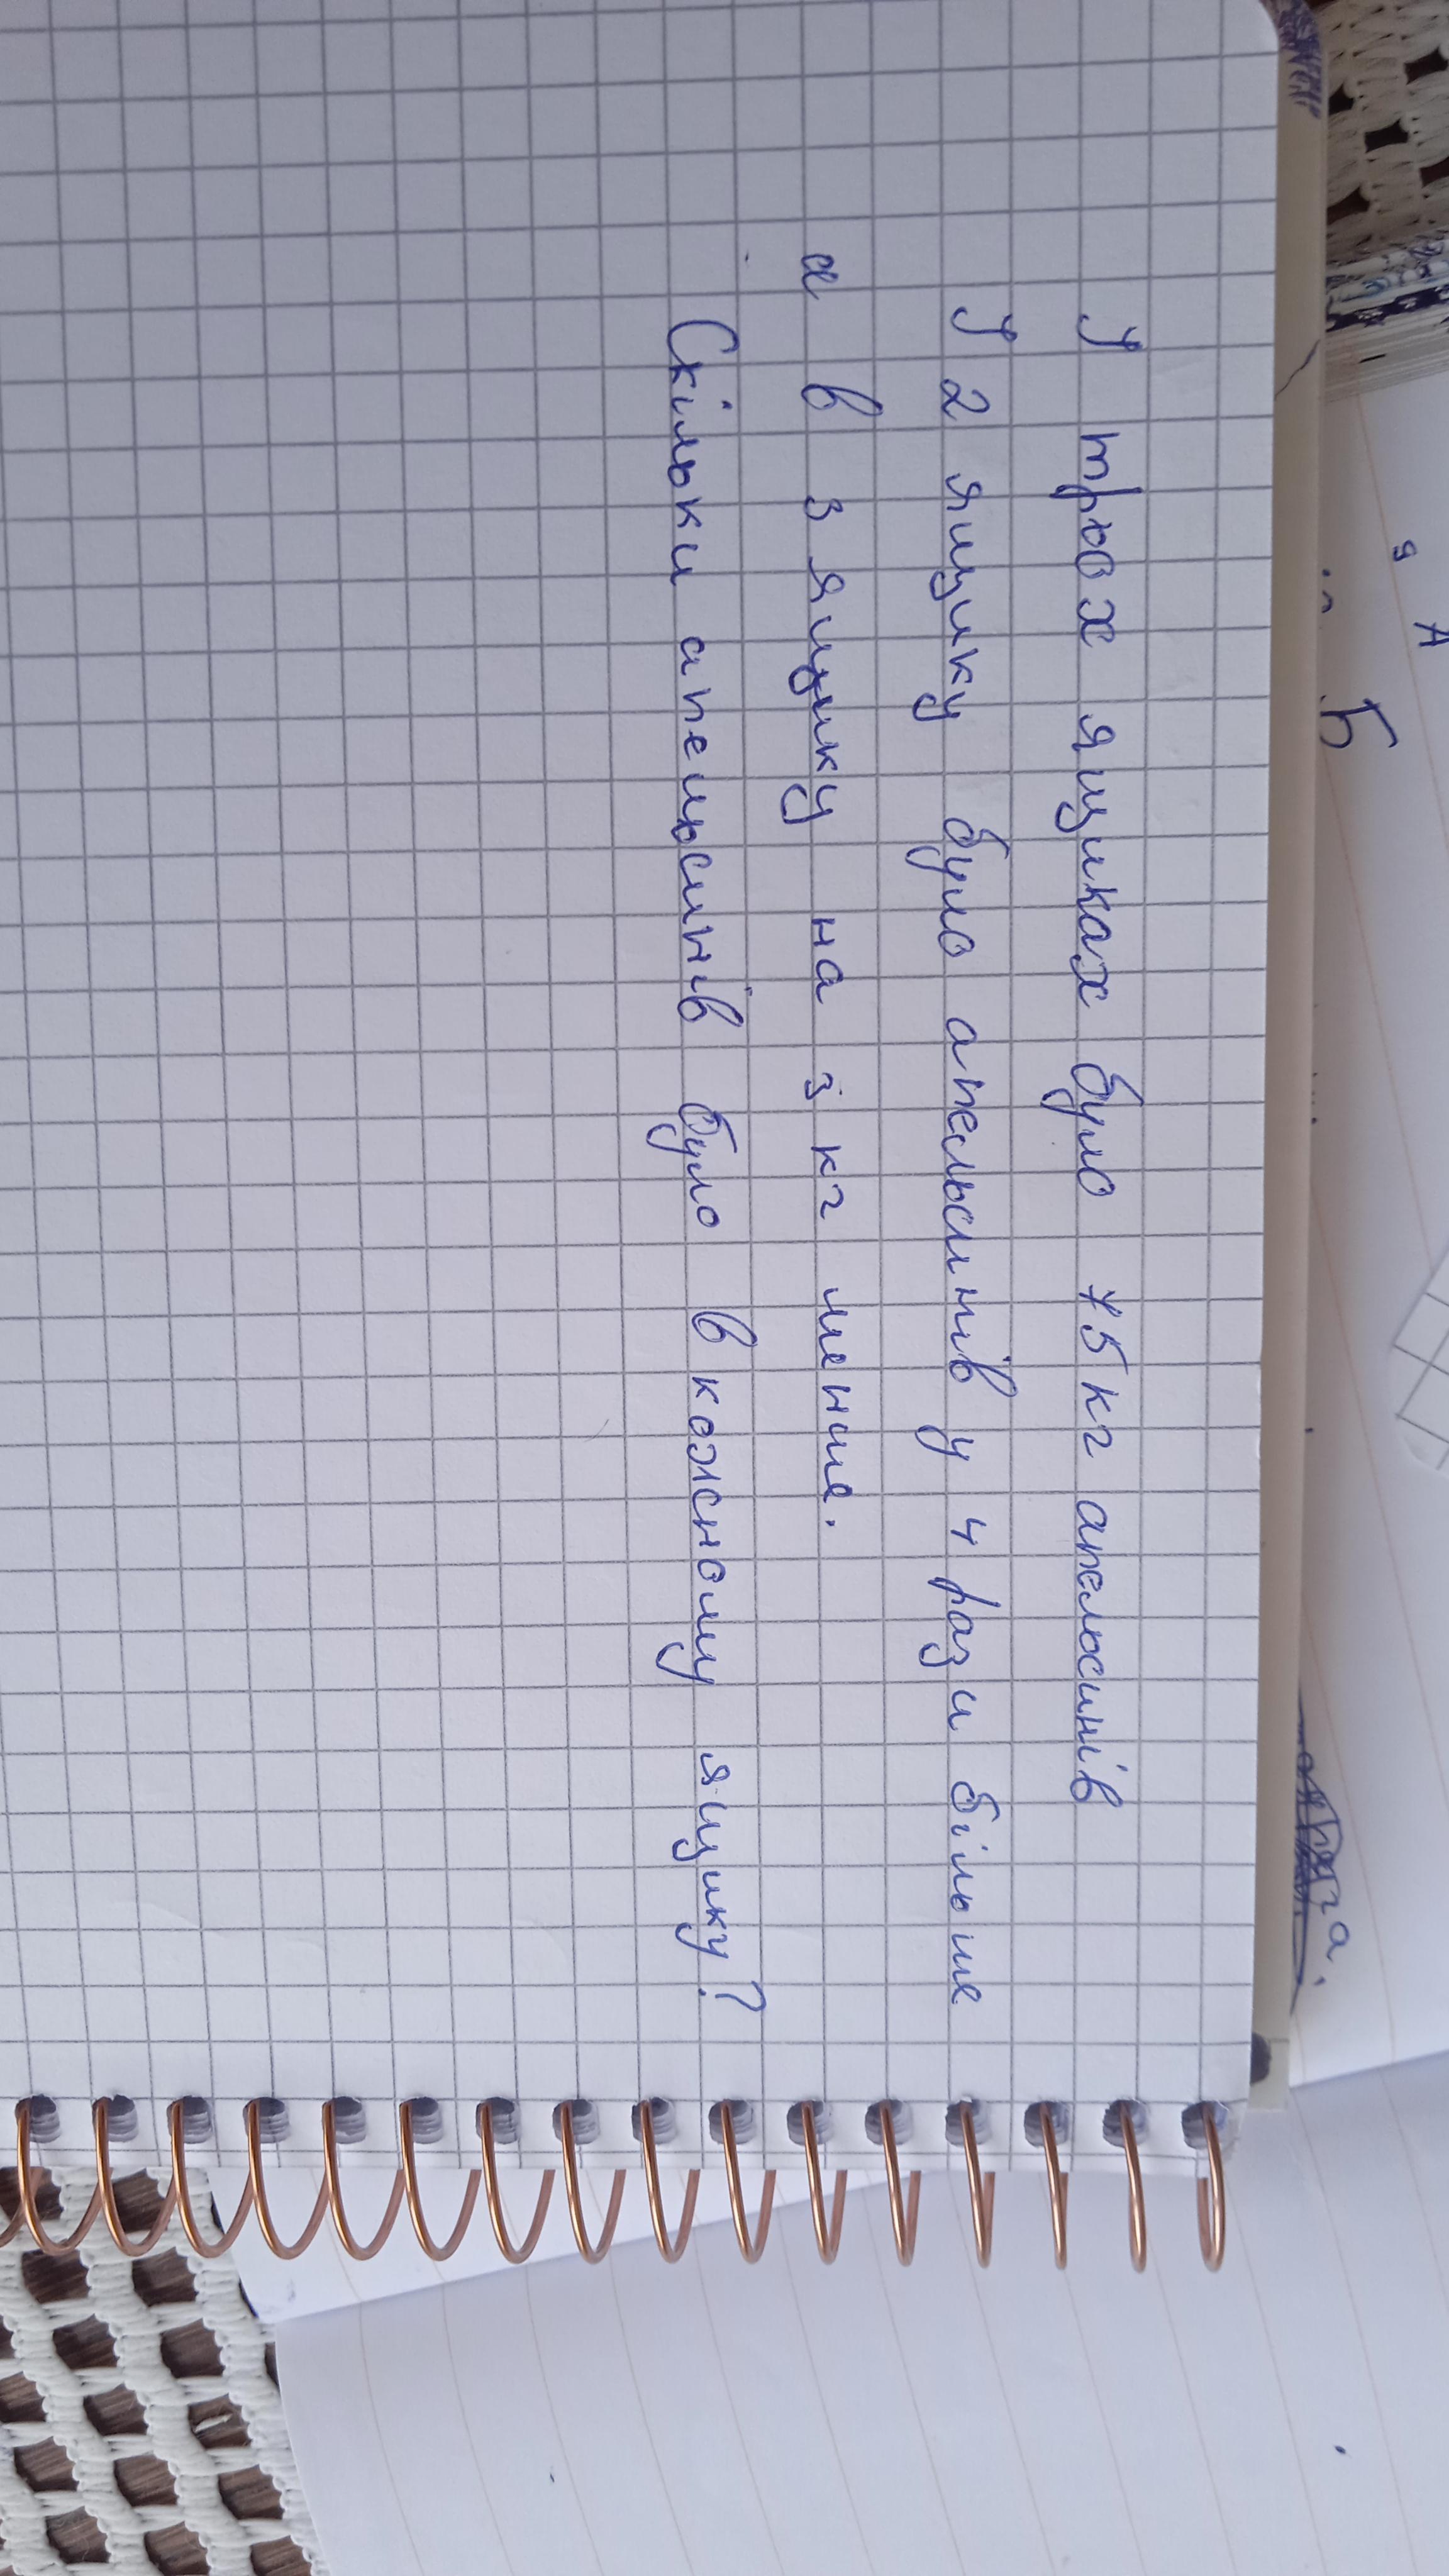 У трьох ящиках було 75 кг апельсинів
У 2 ящику було апельсинів у 4 рази більше
а в 3 ящику на 3 кг менше.
Скільки апельсинів було в кожному ящику?
Б
А
я